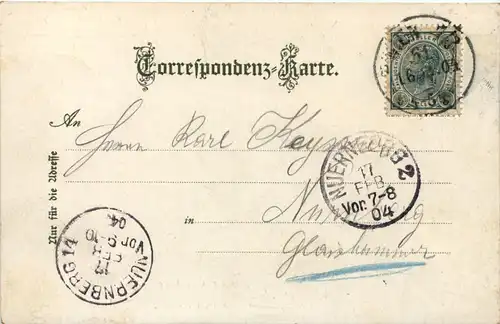 Correspondenz-Karte.
An
Herrn Karl
NUERNBERG 2
17
FEB
Vor. 7-8
04
in
Nürnberg
Glaishammer
Nur für die Adresse
NUERNBERG 14
17
FEB
Vor 9-10
04